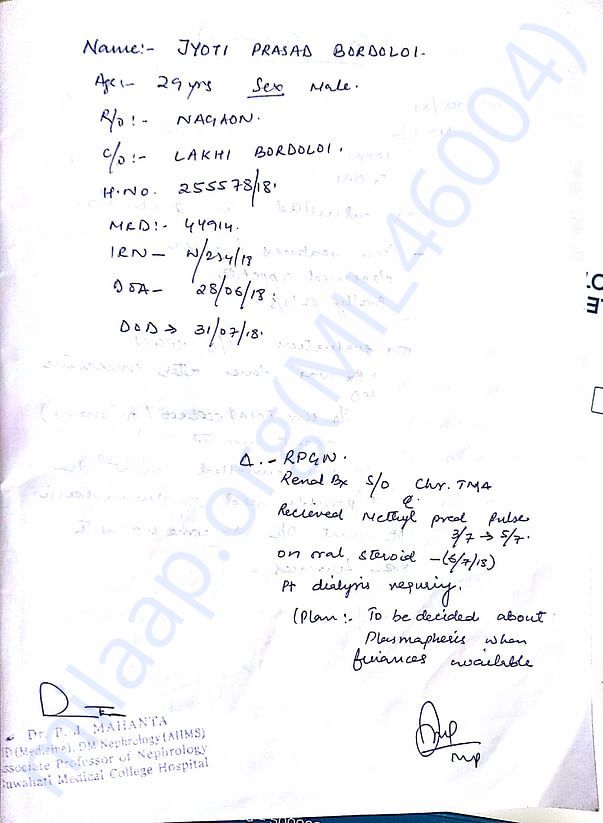 Name:- JYOTI PRASAD BORDOLOI.
Age:- 29 yrs Sex Male.
R/o:- NAGAON.
C/o:- LAKHI BORDOLOI.
H.NO. 255578/18.
MRD:- 44914.
IRN- N/234/18
DOA- 28/06/18.
DOD → 31/07/18.
Δ.- RPGN.
Renal Bx S/O Chr. TMA
Recieved Methyl pred Pulse
3/7 → 5/7.
on oral steroid -(6/7/18)
Pt dialysis requiring.
(Plan:. To be decided about
Plasmapheris when
finances available
Dr. P. J. MAHANTA
D (Medicine), DM Nephrology (AIIMS)
ssociate Professor of Nephrology
uwahati Medical College Hospital
milaap.org(MIL46004)